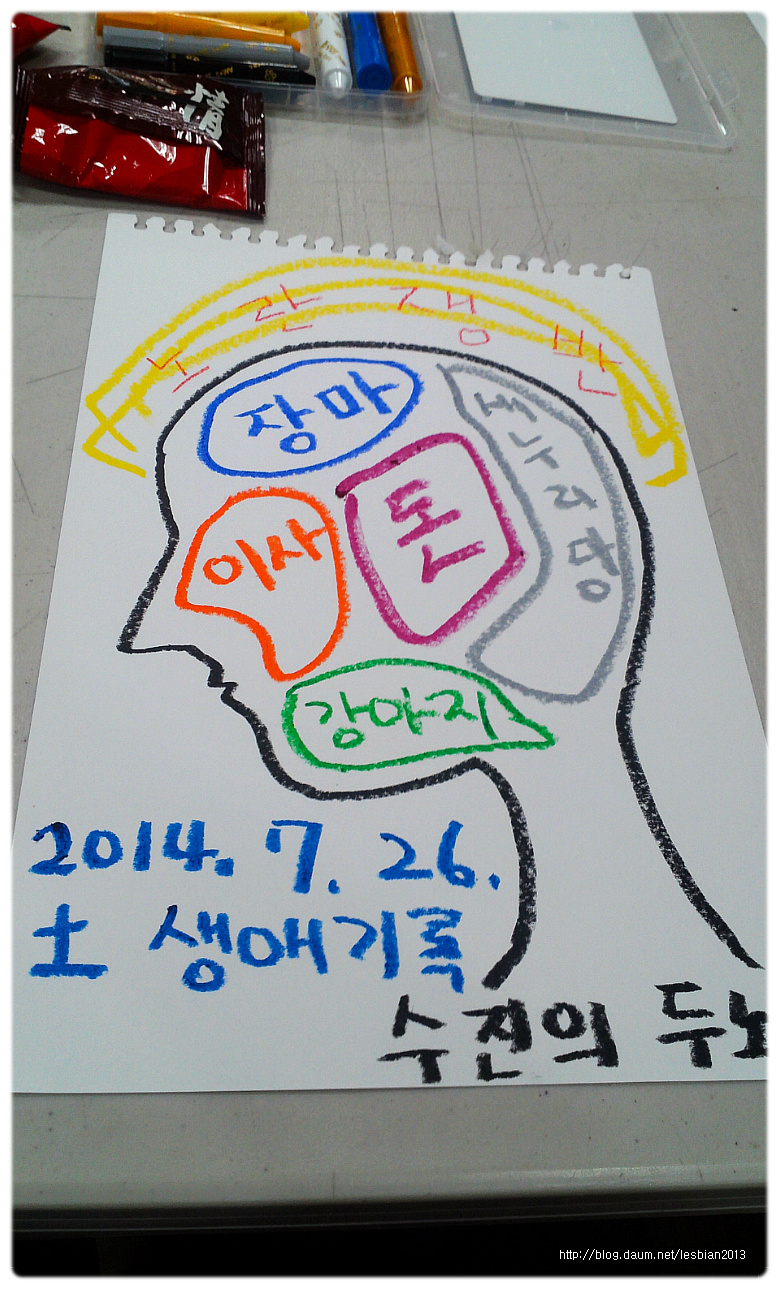 情
노란쟁반
장마
새누리당
돈
이사
강아지
2014. 7. 26.
土 생애기록
수진의 두뇌
http://blog.daum.net/lesbian2013